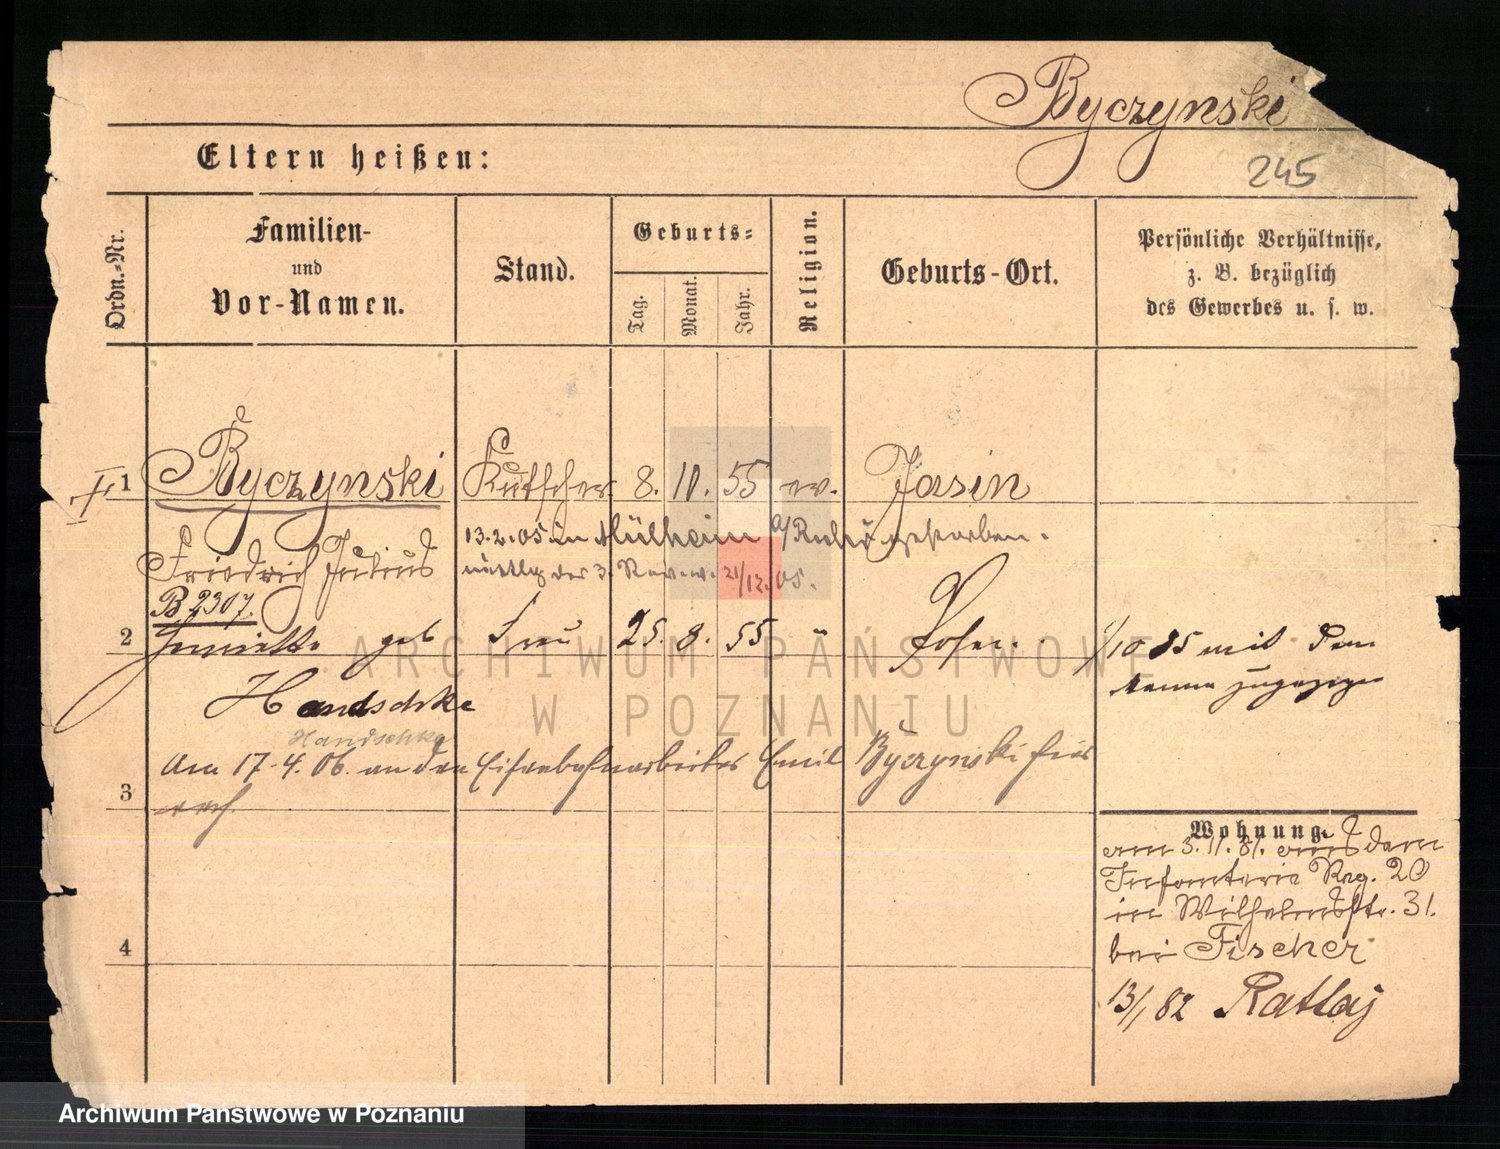 Byczynski
Eltern heißen:
245
Ordn.-Nr.
Familien-
und
Vor-Namen.
Stand.
Geburts-
Tag.
Monat.
Jahr.
Religion.
Geburts-Ort.
Persönliche Verhältnisse,
z. B. bezüglich
des Gewerbes u. s. w.
1 Byczynski Kutscher 8. 10. 55 ev. Jasin
Friedrich Julius
13.2.05 in Mülheim a/Ruhr gestorben.
der 3. Rev. v. 21/12.05.
B 2307.
2 Henriette geb Frau 25. 8. 55 Posen.
Handschke
Handschke
1/10 85 mit dem
Manne zugezogen
Am 17.4.06. an den Eisenbahnarbeiter Emil Byczynski hier
3
Wohnung.
am 3.11.81. aus dem
Infanterie Reg. 20
in Wilhelmsstr. 31.
bei Fischer
13/1 82 Ratlaj
4
ARCHIWUM PAŃSTWOWE
W POZNANIU
Archiwum Państwowe w Poznaniu